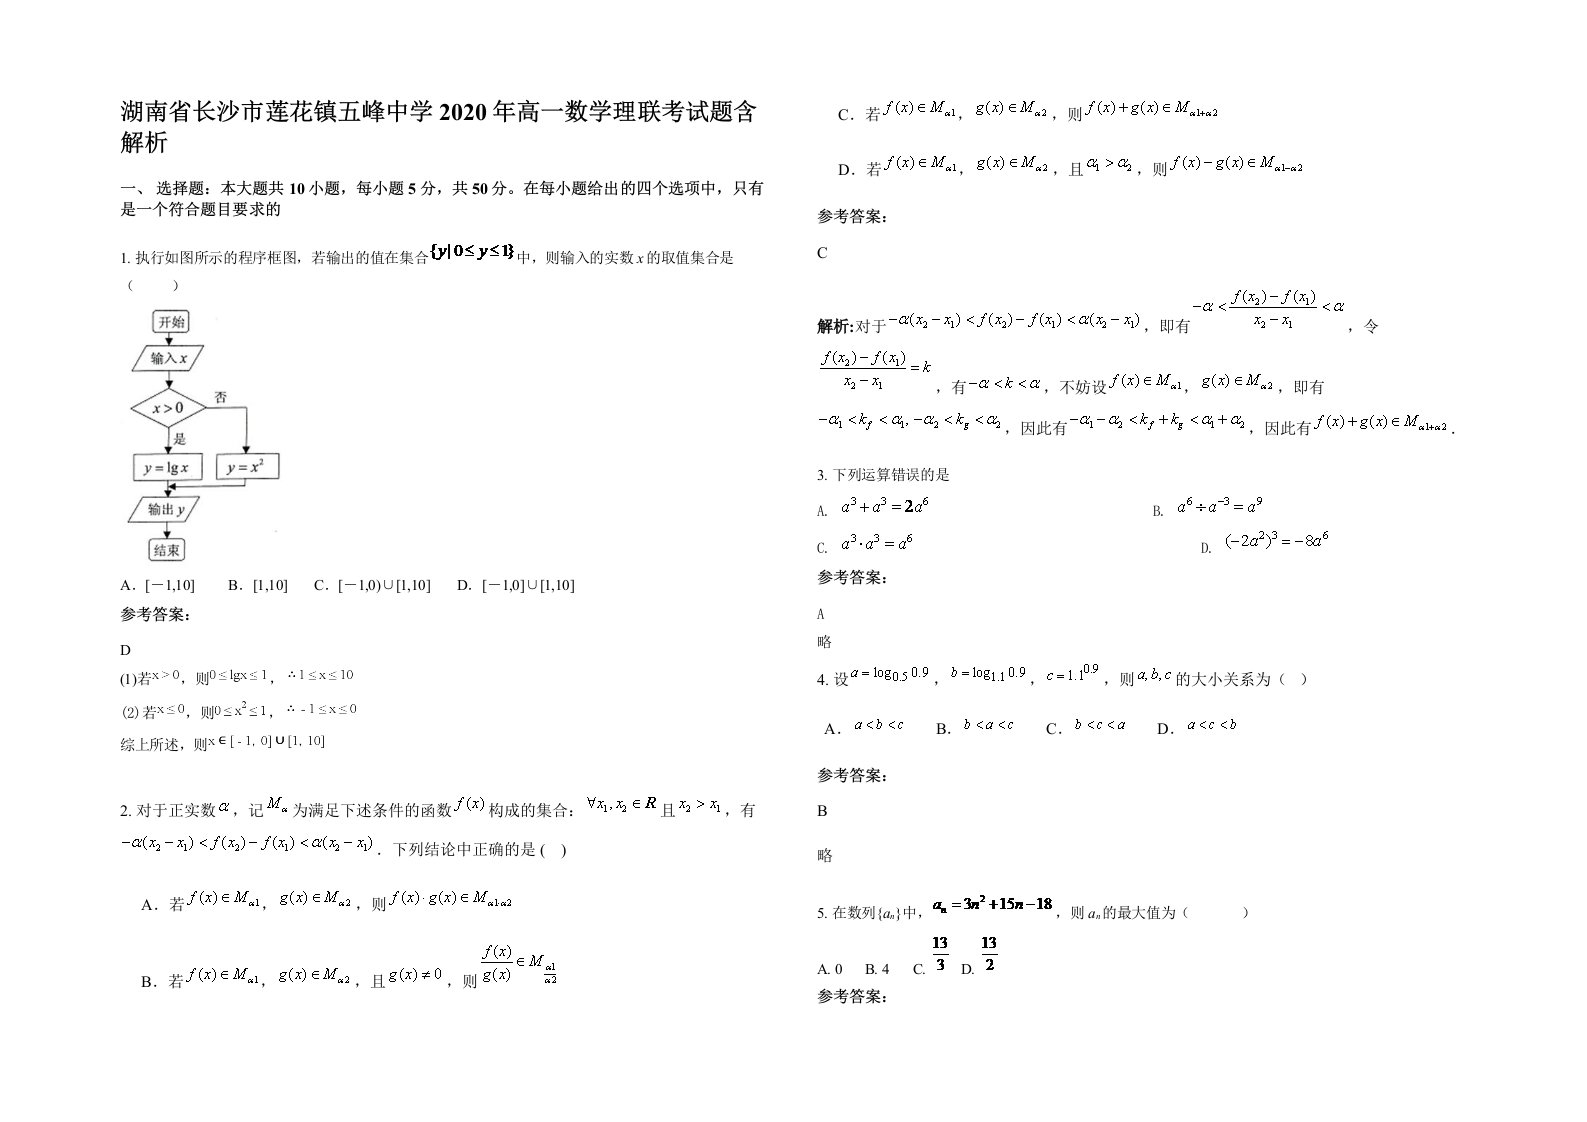 湖南省长沙市莲花镇五峰中学 2020 年高一数学理联考试题含
解析
一、 选择题：本大题共 10 小题，每小题 5 分，共 50 分。在每小题给出的四个选项中，只有
是一个符合题目要求的
1. 执行如图所示的程序框图，若输出的值在集合{y|0≤y≤1}中，则输入的实数 x 的取值集合是
（　　）
开始
输入 x
x>0
否
是
y=lg x
y=x²
输出 y
结束
A．[－1,10]　　B．[1,10]　　C．[－1,0)∪[1,10]　　D．[－1,0]∪[1,10]
参考答案：
D
(1)若x>0，则0≤lgx≤1，∴1≤x≤10
(2) 若x≤0，则0≤x²≤1，∴-1≤x≤0
综上所述，则x∈[-1, 0]∪[1, 10]
2. 对于正实数α，记M_α为满足下述条件的函数f(x)构成的集合：∀x₁, x₂∈R且x₂>x₁，有
−α(x₂−x₁)<f(x₂)−f(x₁)<α(x₂−x₁)．下列结论中正确的是 (　)
A．若f(x)∈M_α1，g(x)∈M_α2，则f(x)·g(x)∈M_α1·α2
B．若f(x)∈M_α1，g(x)∈M_α2，且g(x)≠0，则f(x)/g(x)∈M_α1/α2
C．若f(x)∈M_α1，g(x)∈M_α2，则f(x)+g(x)∈M_α1+α2
D．若f(x)∈M_α1，g(x)∈M_α2，且α₁>α₂，则f(x)−g(x)∈M_α1−α2
参考答案：
C
解析:对于−α(x₂−x₁)<f(x₂)−f(x₁)<α(x₂−x₁)，即有−α<(f(x₂)−f(x₁))/(x₂−x₁)<α，令
(f(x₂)−f(x₁))/(x₂−x₁)=k，有−α<k<α，不妨设f(x)∈M_α1，g(x)∈M_α2，即有
−α₁<k_f<α₁, −α₂<k_g<α₂，因此有−α₁−α₂<k_f+k_g<α₁+α₂，因此有f(x)+g(x)∈M_α1+α2．
3. 下列运算错误的是
A. a³+a³=2a⁶　　B. a⁶÷a⁻³=a⁹
C. a³·a³=a⁶　　D. (−2a²)³=−8a⁶
参考答案：
A
略
4. 设a=log₀.₅0.9，b=log₁.₁0.9，c=1.1^0.9，则a, b, c的大小关系为（　）
A．a<b<c　　B．b<a<c　　C．b<c<a　　D．a<c<b
参考答案：
B
略
5. 在数列{aₙ}中，aₙ=3n²+15n−18，则 aₙ的最大值为（　　）
A. 0　　B. 4　　C. 13/3　　D. 13/2
参考答案：